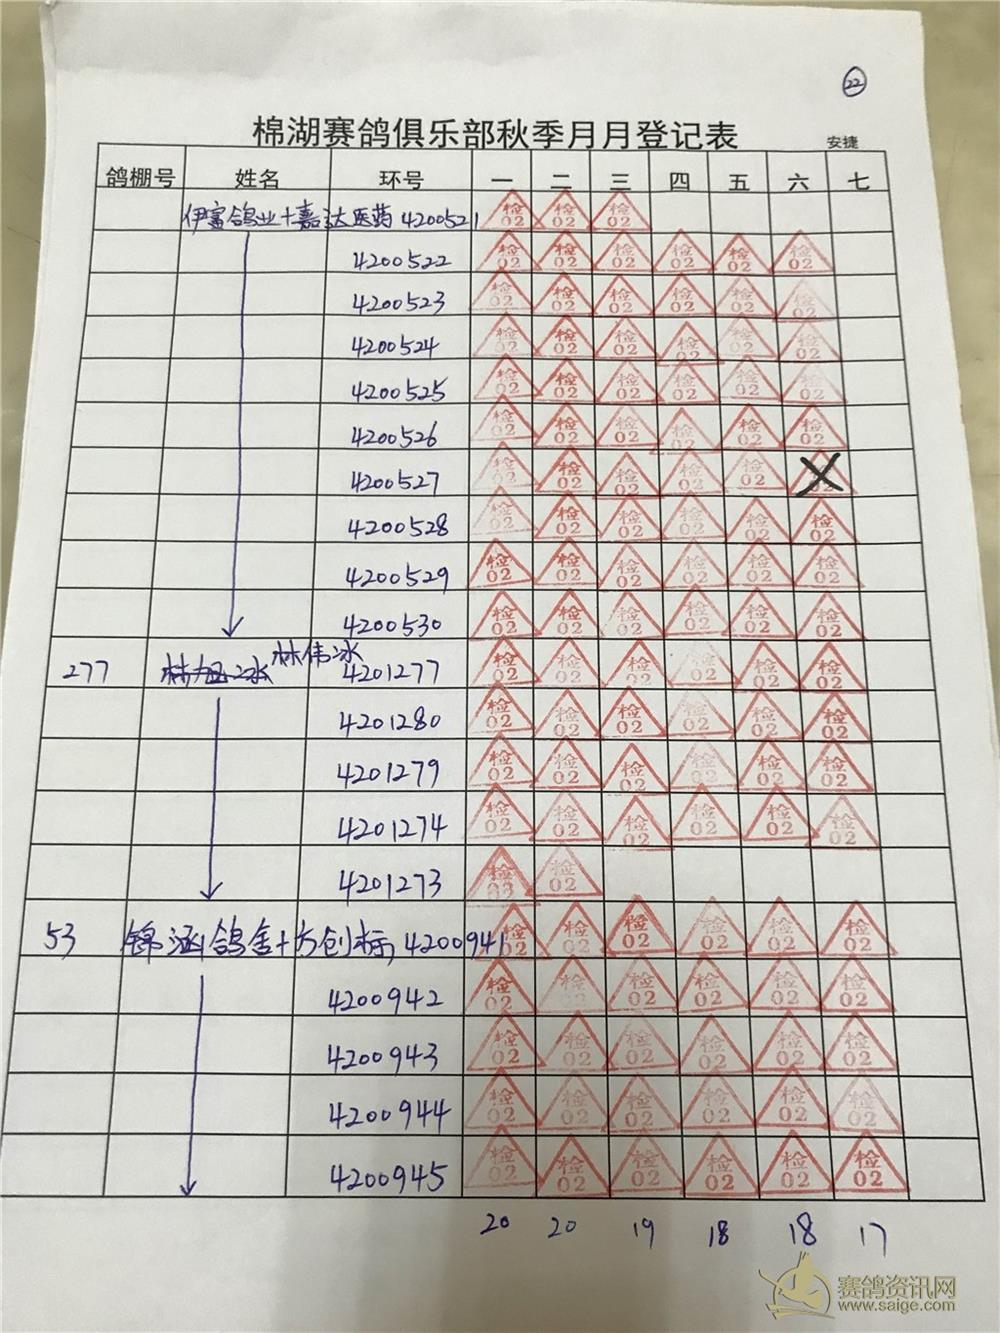 22
棉湖赛鸽俱乐部秋季月月登记表
安捷
鸽棚号 姓名 环号 一 二 三 四 五 六 七
伊富鸽业+嘉达医药 4200521 检02 检02 检02
4200522 检02 检02 检02 检02 检02 检02
4200523 检02 检02 检02 检02 检02 检02
4200524 检02 检02 检02 检02 检02 检02
4200525 检02 检02 检02 检02 检02 检02
4200526 检02 检02 检02 检02 检02 检02
4200527 检02 检02 检02 检02 检02 X
4200528 检02 检02 检02 检02 检02 检02
4200529 检02 检02 检02 检02 检02 检02
4200530 检02 检02 检02 检02 检02 检02
277 林伟冰 4201277 检02 检02 检02 检02 检02 检02
4201280 检02 检02 检02 检02 检02 检02
4201279 检02 检02 检02 检02 检02 检02
4201274 检02 检02 检02 检02 检02 检02
4201273 检 检02
53 锦涵鸽舍+方创标 4200941 检02 检02 检02 检02 检02 检02
4200942 检02 检02 检02 检02 检02 检02
4200943 检02 检02 检02 检02 检02 检02
4200944 检02 检02 检02 检02 检02 检02
4200945 检02 检02 检02 检02 检02 检02
20 20 19 18 18 17
赛鸽资讯网
www.saige.com